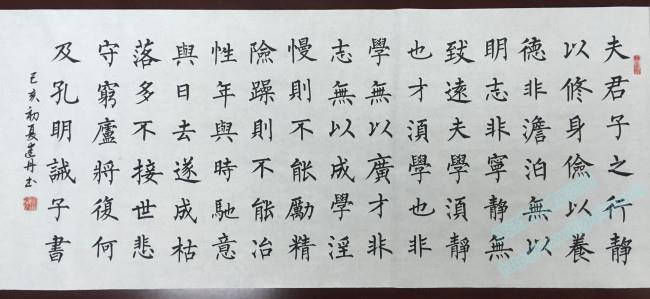 夫君子之行靜
以修身儉以養
德非澹泊無以
明志非寧靜無
致遠夫學湏靜
也才湏學也非
學無以廣才非
志無以成學淫
慢則不能勵精
險躁則不能冶
性年與時馳意
與日去遂成枯
落多不接世悲
守窮廬將復何
及孔明誡子書
己亥初夏